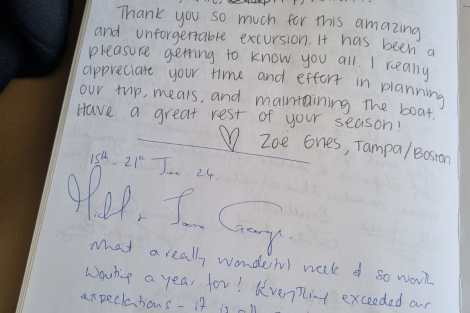 Thank you so much for this amazing
and unforgettable excursion. It has been a
pleasure getting to know you all. I really
appreciate your time and effort in planning
our trip, meals, and maintaining the boat.
Have a great rest of your season!
♡ Zoe Gnes, Tampa/Boston
15th - 21st Jan 24.
George.
What a really wonderful week & so worth
waiting a year for! Everything exceeded our
expectations - it is all